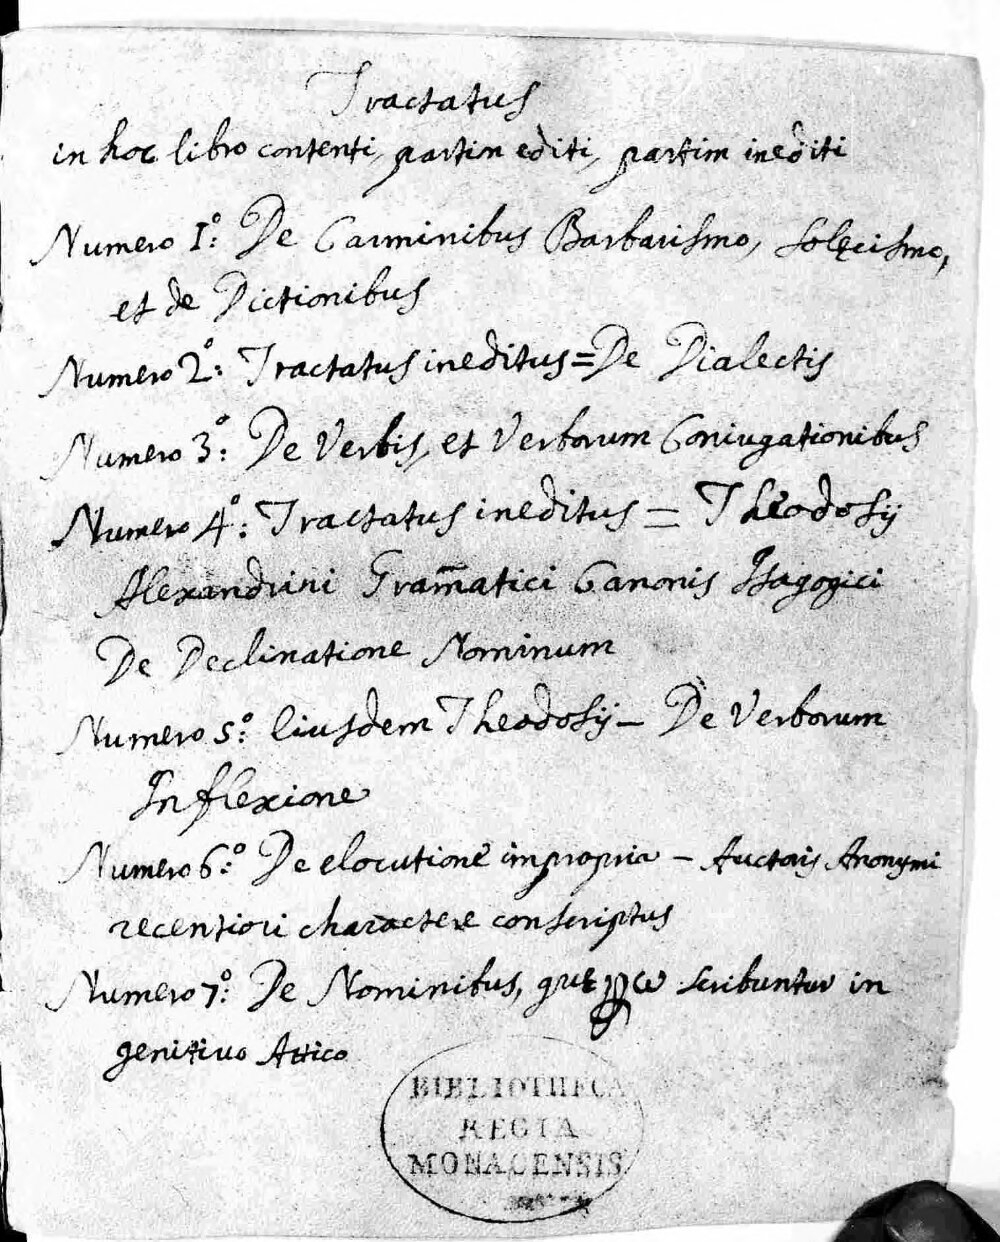 Tractatus
in hoc libro contenti, partim editi, partim inediti
Numero 1º: De Carminibus Barbarismo, solęcismo,
et de Dictionibus
Numero 2º: Tractatus ineditus = De Dialectis
Numero 3º: De Verbis, et Verborum Coniugationibus
Numero 4º: Tractatus ineditus = Theodosij
Alexandrini Gram̅atici Canonis Isagogici
De Declinatione Nominum
Numero 5º: Eiusdem Theodosij – De Verborum
Inflexione
Numero 6º: De elocutione impropria – Auctoris Anonymi
recentiori charactere conscriptus
Numero 7º: De Nominibus, quę ꝑ ω scribuntur in
genitivo Attico
BIBLIOTHECA
REGIA
MONACENSIS